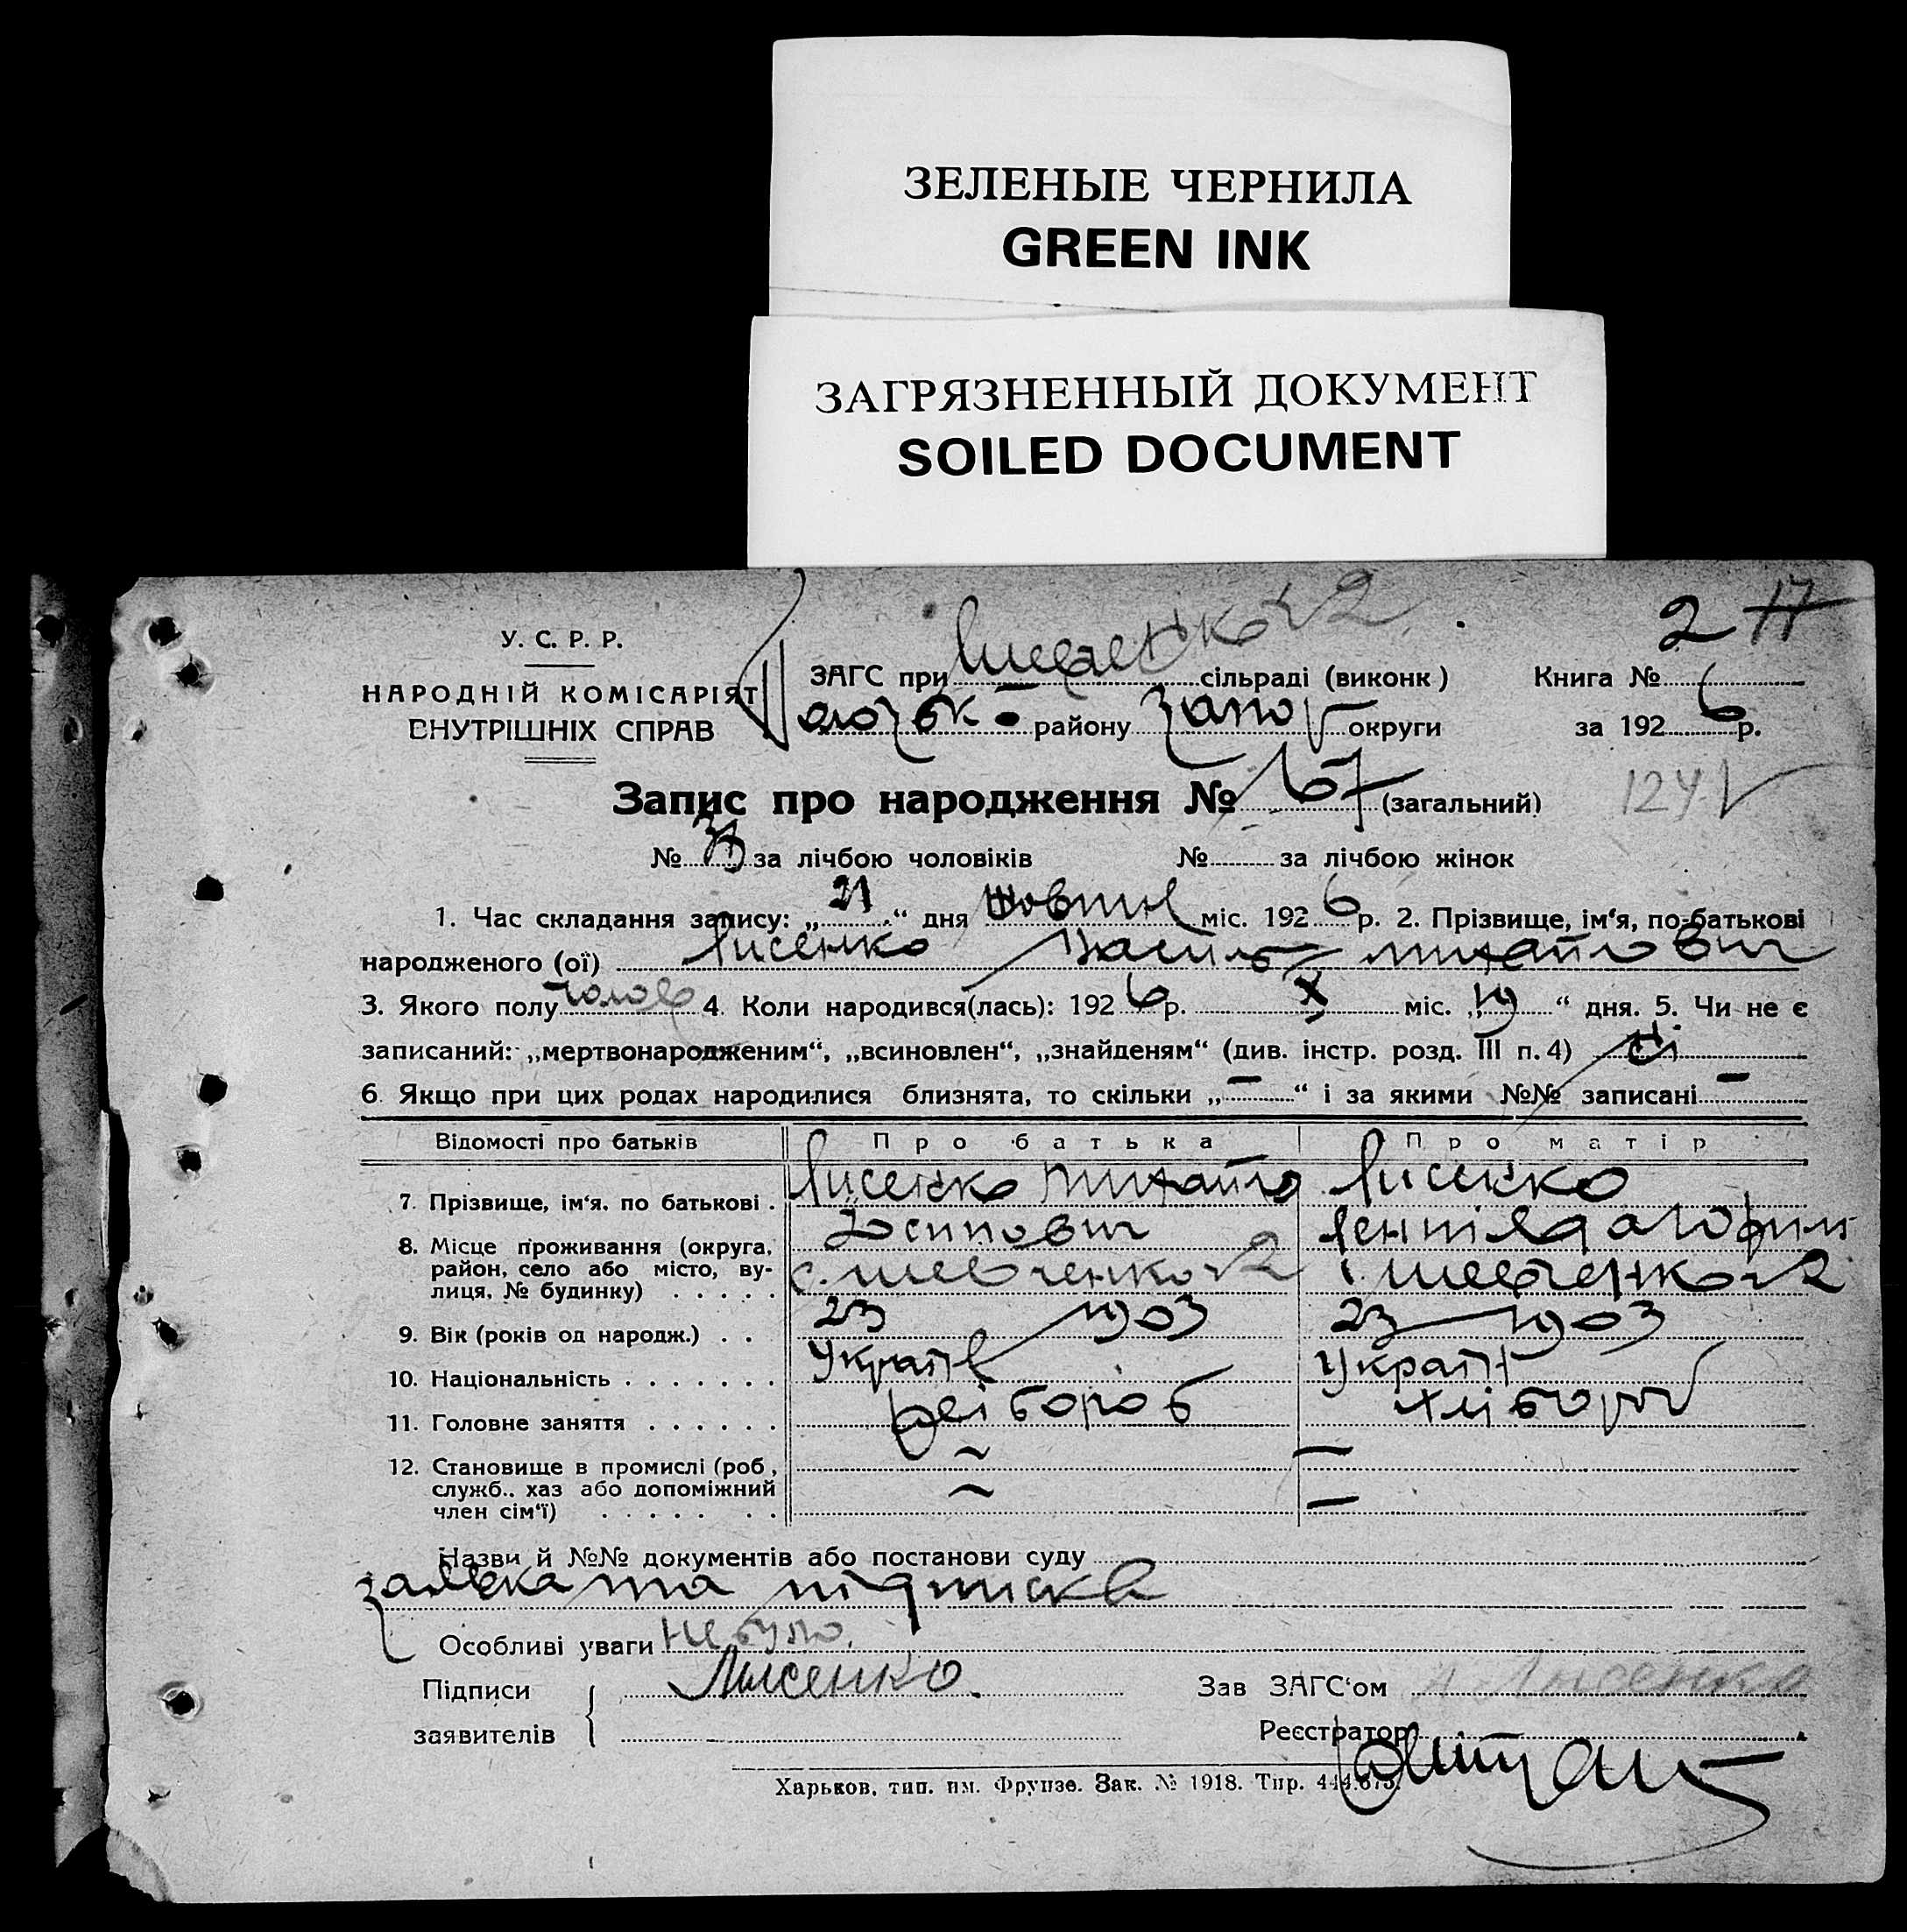 ЗЕЛЕНЫЕ ЧЕРНИЛА
GREEN INK
ЗАГРЯЗНЕННЫЙ ДОКУМЕНТ
SOILED DOCUMENT
2 17
У. С. Р. Р.
НАРОДНІЙ КОМІСАРІЯТ
ВНУТРІШНІХ СПРАВ
ЗАГС при № 2 сільраді (виконк) Книга №
району Запор округи за 1926 р.
Запис про народження № 67 (загальний) 124
№ за лічбою чоловіків № за лічбою жінок
1. Час складання запису: „21“ дня жовтня міс. 1926 р. 2. Прізвище, ім‘я, по-батькові
народженого (ої) Лисенко Василь Михайлович
3. Якого полу чолов 4. Коли народився(лась): 1926 р. X міс. „19“ дня. 5. Чи не є
записаний: „мертвонародженим“, „всиновлен“, „знайденям“ (див. інстр. розд. III п. 4) ні
6. Якщо при цих родах народилися близнята, то скільки „—“ і за якими №№ записані —
Відомості про батьків Про батька Про матір
7. Прізвище, ім‘я, по батькові . Лисенко Михайло Лисенко
8. Місце проживання (округа, Осипович
район, село або місто, ву-
лиця, № будинку) . . . . . с. Шевченко № 2 с. Шевченко № 2
9. Вік (років од народж.) . . 23 1903 23 1903
10. Національність . . . . . . . Україн Україн
11. Головне заняття . . . . . . хлібороб хлібороб
12. Становище в промислі (роб, ~ —
служб., хаз або допоміжний ~ —
член сім‘ї) . . . . . . .
Назви й №№ документів або постанови суду
заявка та підписка
Особливі уваги не було.
Підписи Лысенко. Зав ЗАГС‘ом Лысенко
заявителів Реєстратор
Харьков, тип. им. Фрунзе. Зак. № 1918. Тир. 444.675.